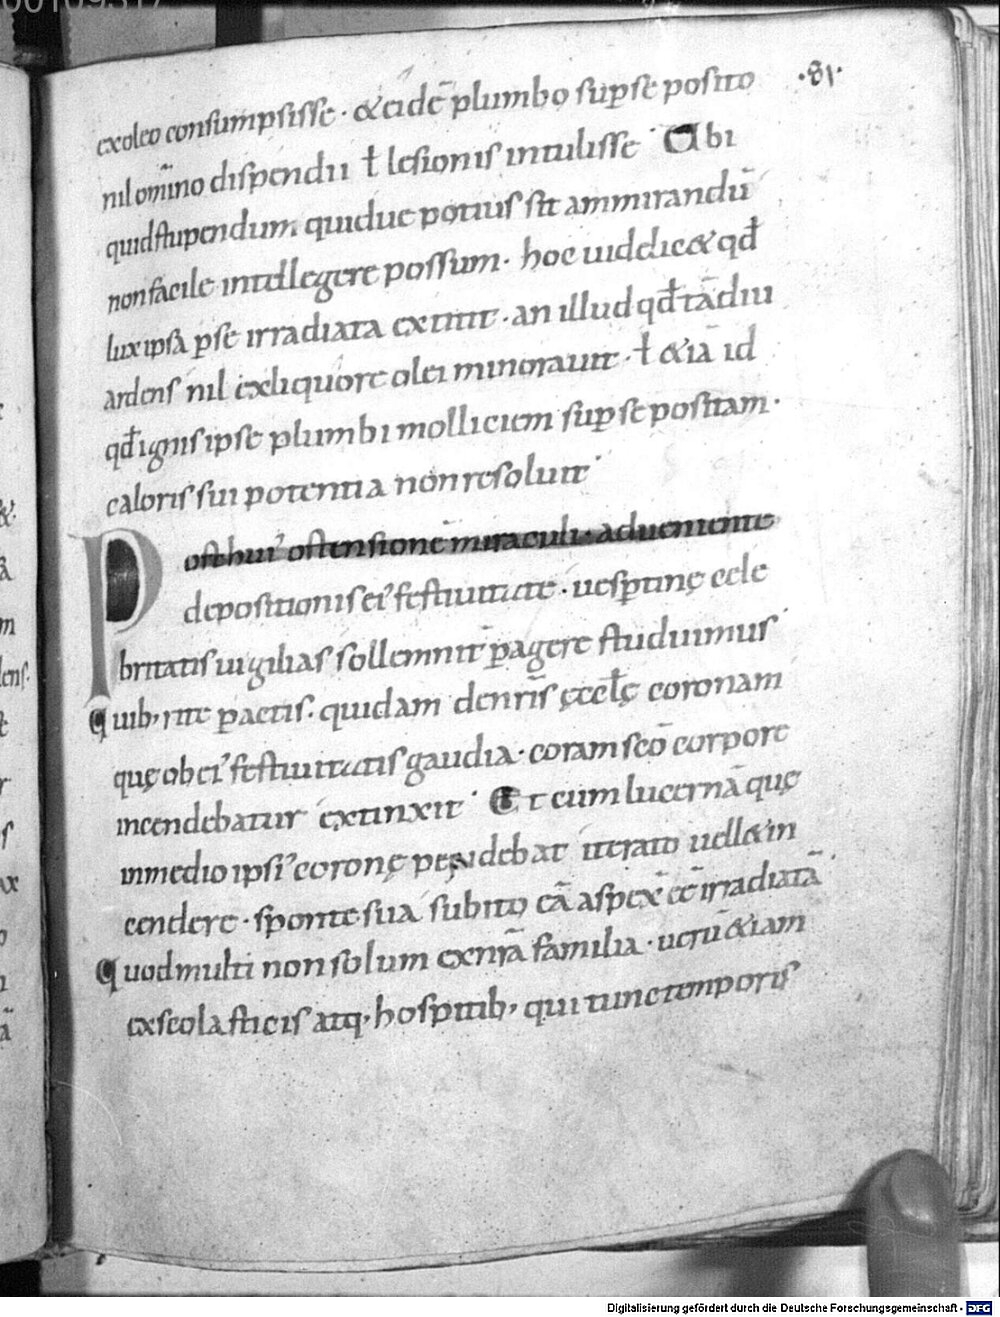 ·81·
exoleo consumpsisse · &eidē plumbo sup se posito
nil omĩno dispendii ł lesionis intulisse · Ubi
quid stupendum, quidue potius sit ammirandū
non facile intellegere possum · hoc uidelic& qđ
lux ipsa p se irradiata extitit · an illud qđ tādiu
ardens nil ex liquore olei minorauit · ł &iā id
qđ ignis ipse plumbi molliciem sup se positam ·
caloris sui potentia non resoluit ·
Post hui' ostensionē miraculi · adueniente
depositionis ei' festiuitate · uesptinę cele
britatis uigilias sollemnit pagere studuimus
Quib, rite pactis · quidam de nrīs ęcclę coronam
quę ob ei' festiuitatis gaudia · coram scō corpore
incendebatur extinxit · Et cum lucernā quę
in medio ipsi' coronę pendebat iterato uell& in
cendere · sponte sua subito eā aspex̄ ēē irradiatā ·
Quod multi non solum ex nrā familia · uerū &iam
ex scolasticis atq, hospitib, qui tunc temporis
Digitalisierung gefördert durch die Deutsche Forschungsgemeinschaft · DFG